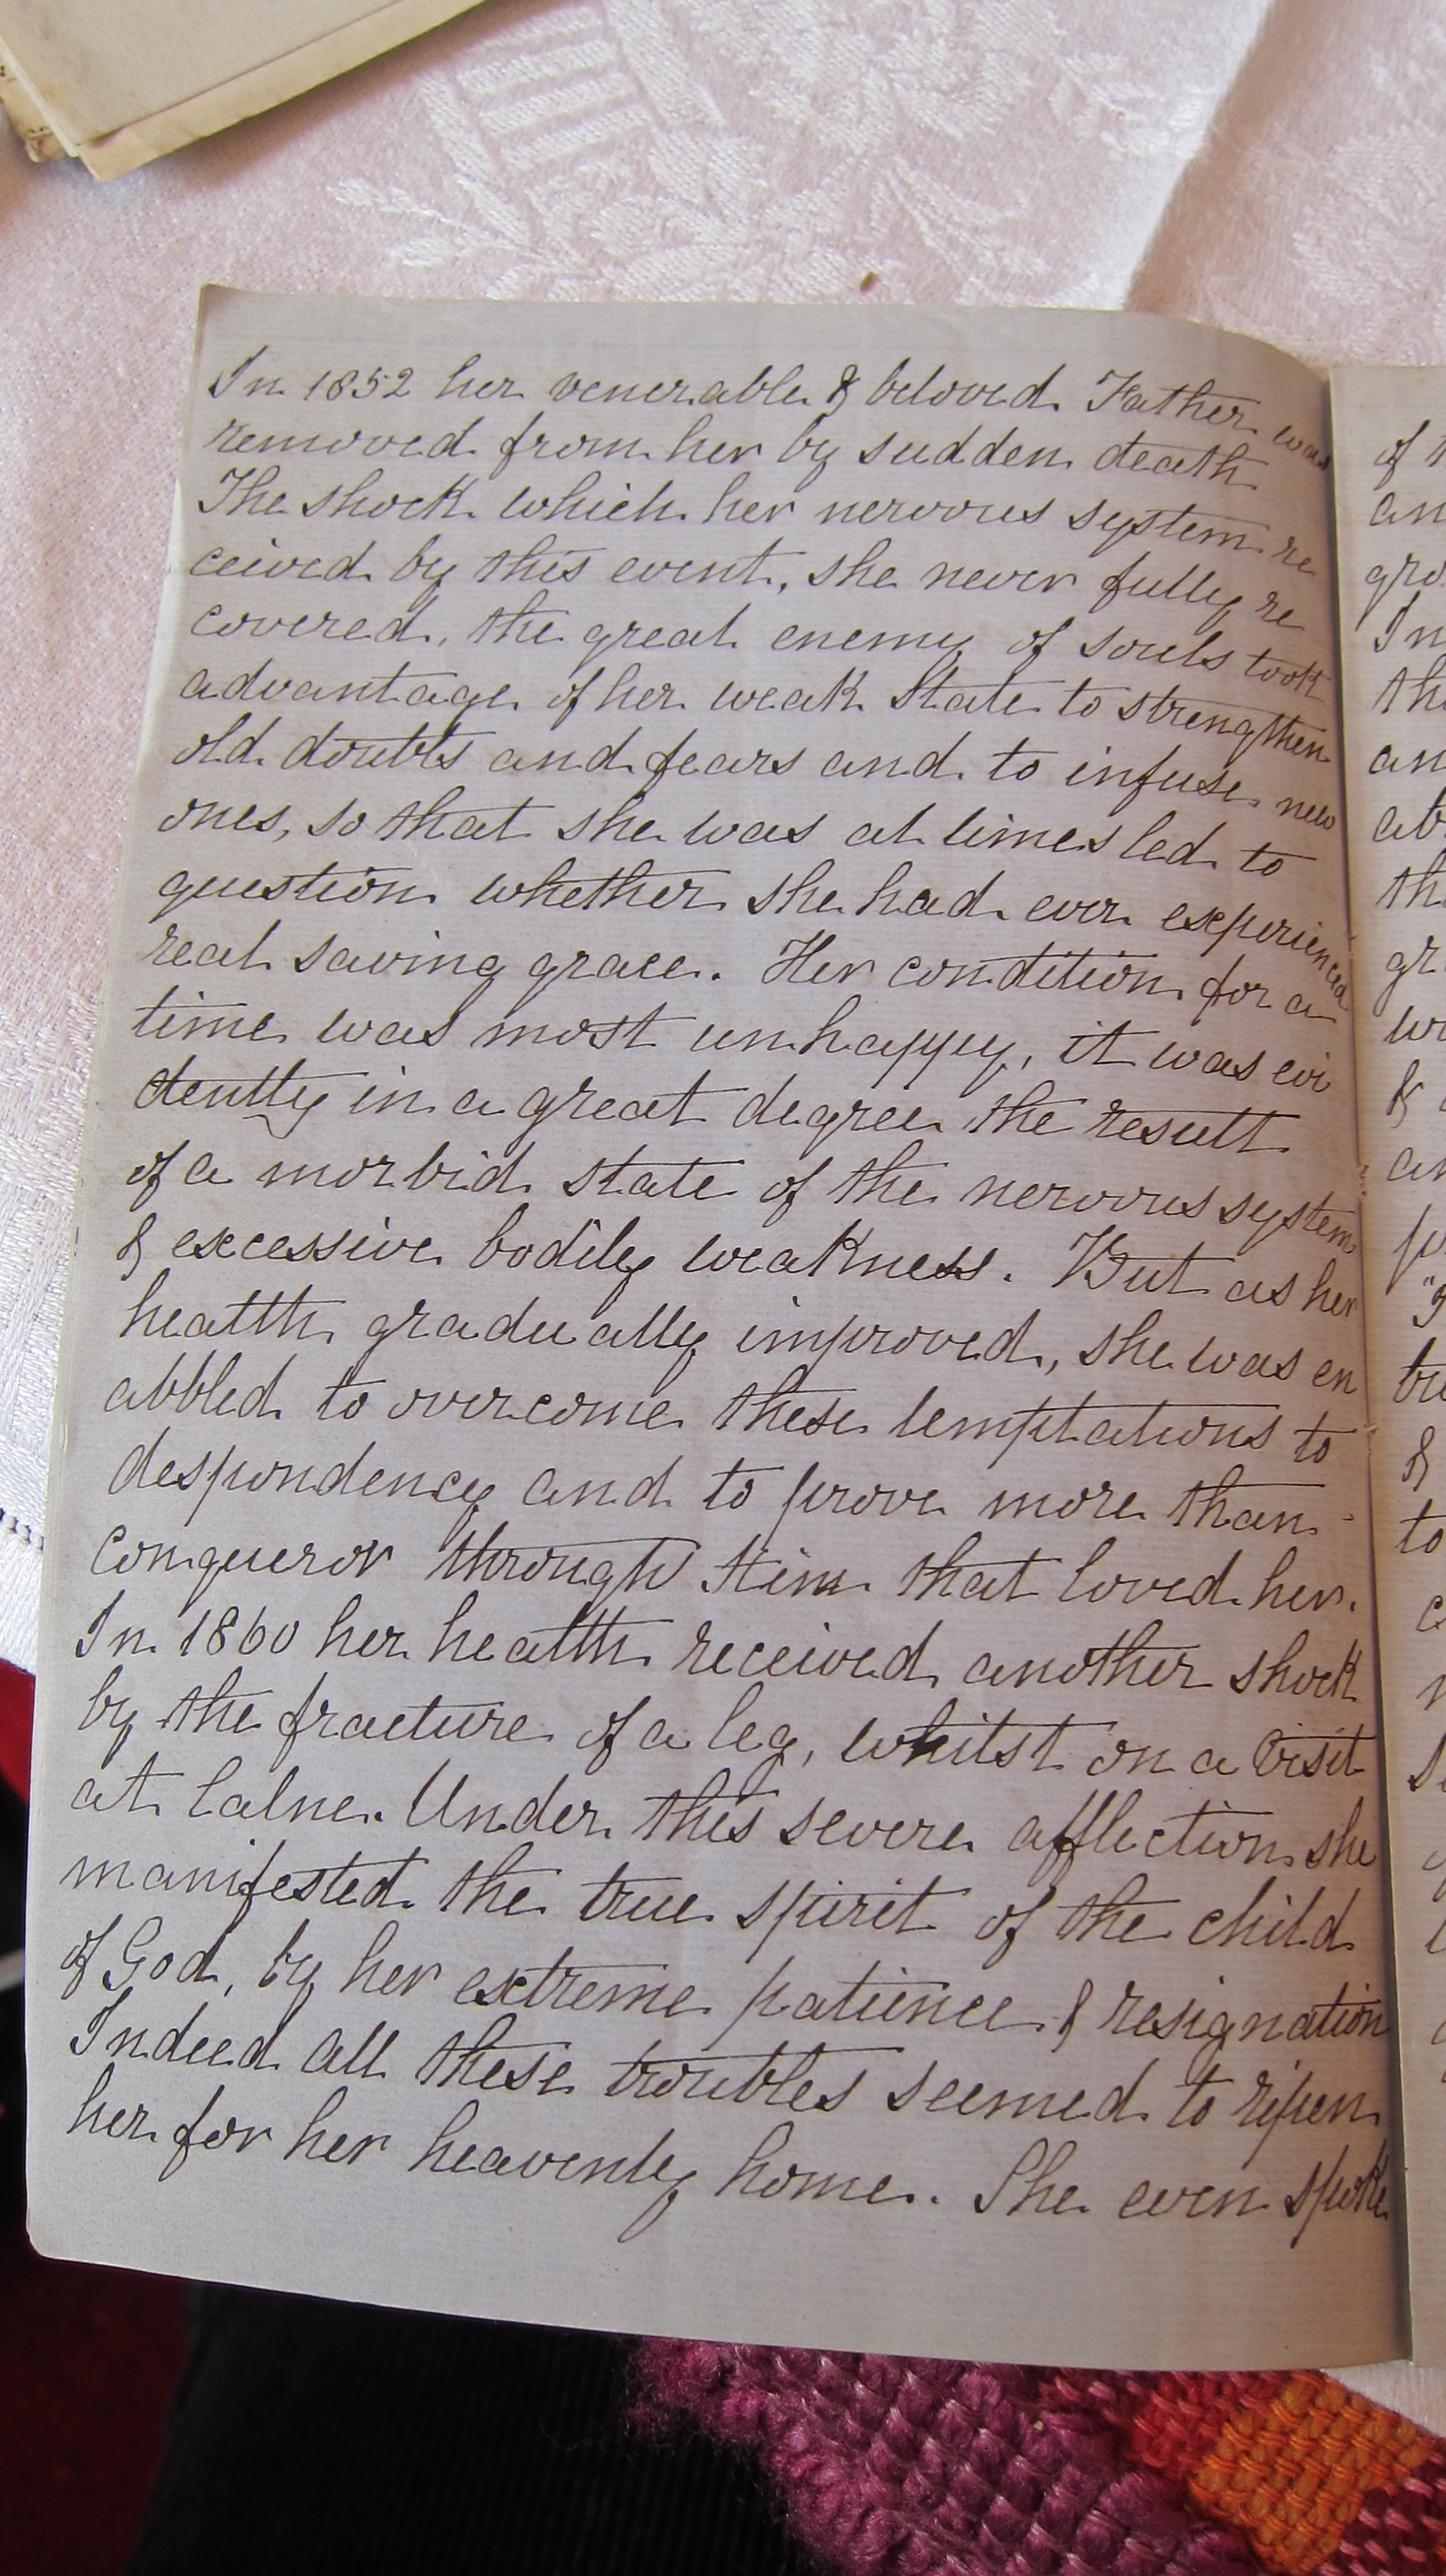 In 1852 her venerable & beloved Father was
removed from her by sudden death
The shock which her nervous system re
ceived by this event, she never fully re
covered, the great enemy of souls took
advantage of her weak state to strengthen
old doubts and fears and to infuse new
ones, so that she was at times led to
question whether she had ever experienced
real saving grace. Her condition for a
time was most unhappy, it was evi
dently in a great degree the result
of a morbid state of the nervous system
& excessive bodily weakness. But as her
health gradually improved, she was en
abbled to overcome these temptations to
despondency and to prove more than
conqueror through Him that loved her.
In 1860 her health received another shock
by the fracture of a leg, whilst on a visit
at Calne. Under this severe affliction she
manifested the true spirit of the child
of God, by her extreme patience & resignation
Indeed all these troubles seemed to ripen
her for her heavenly home. She even spoke
of
an
In
th
an
ab
th
gr
&
an
&
to